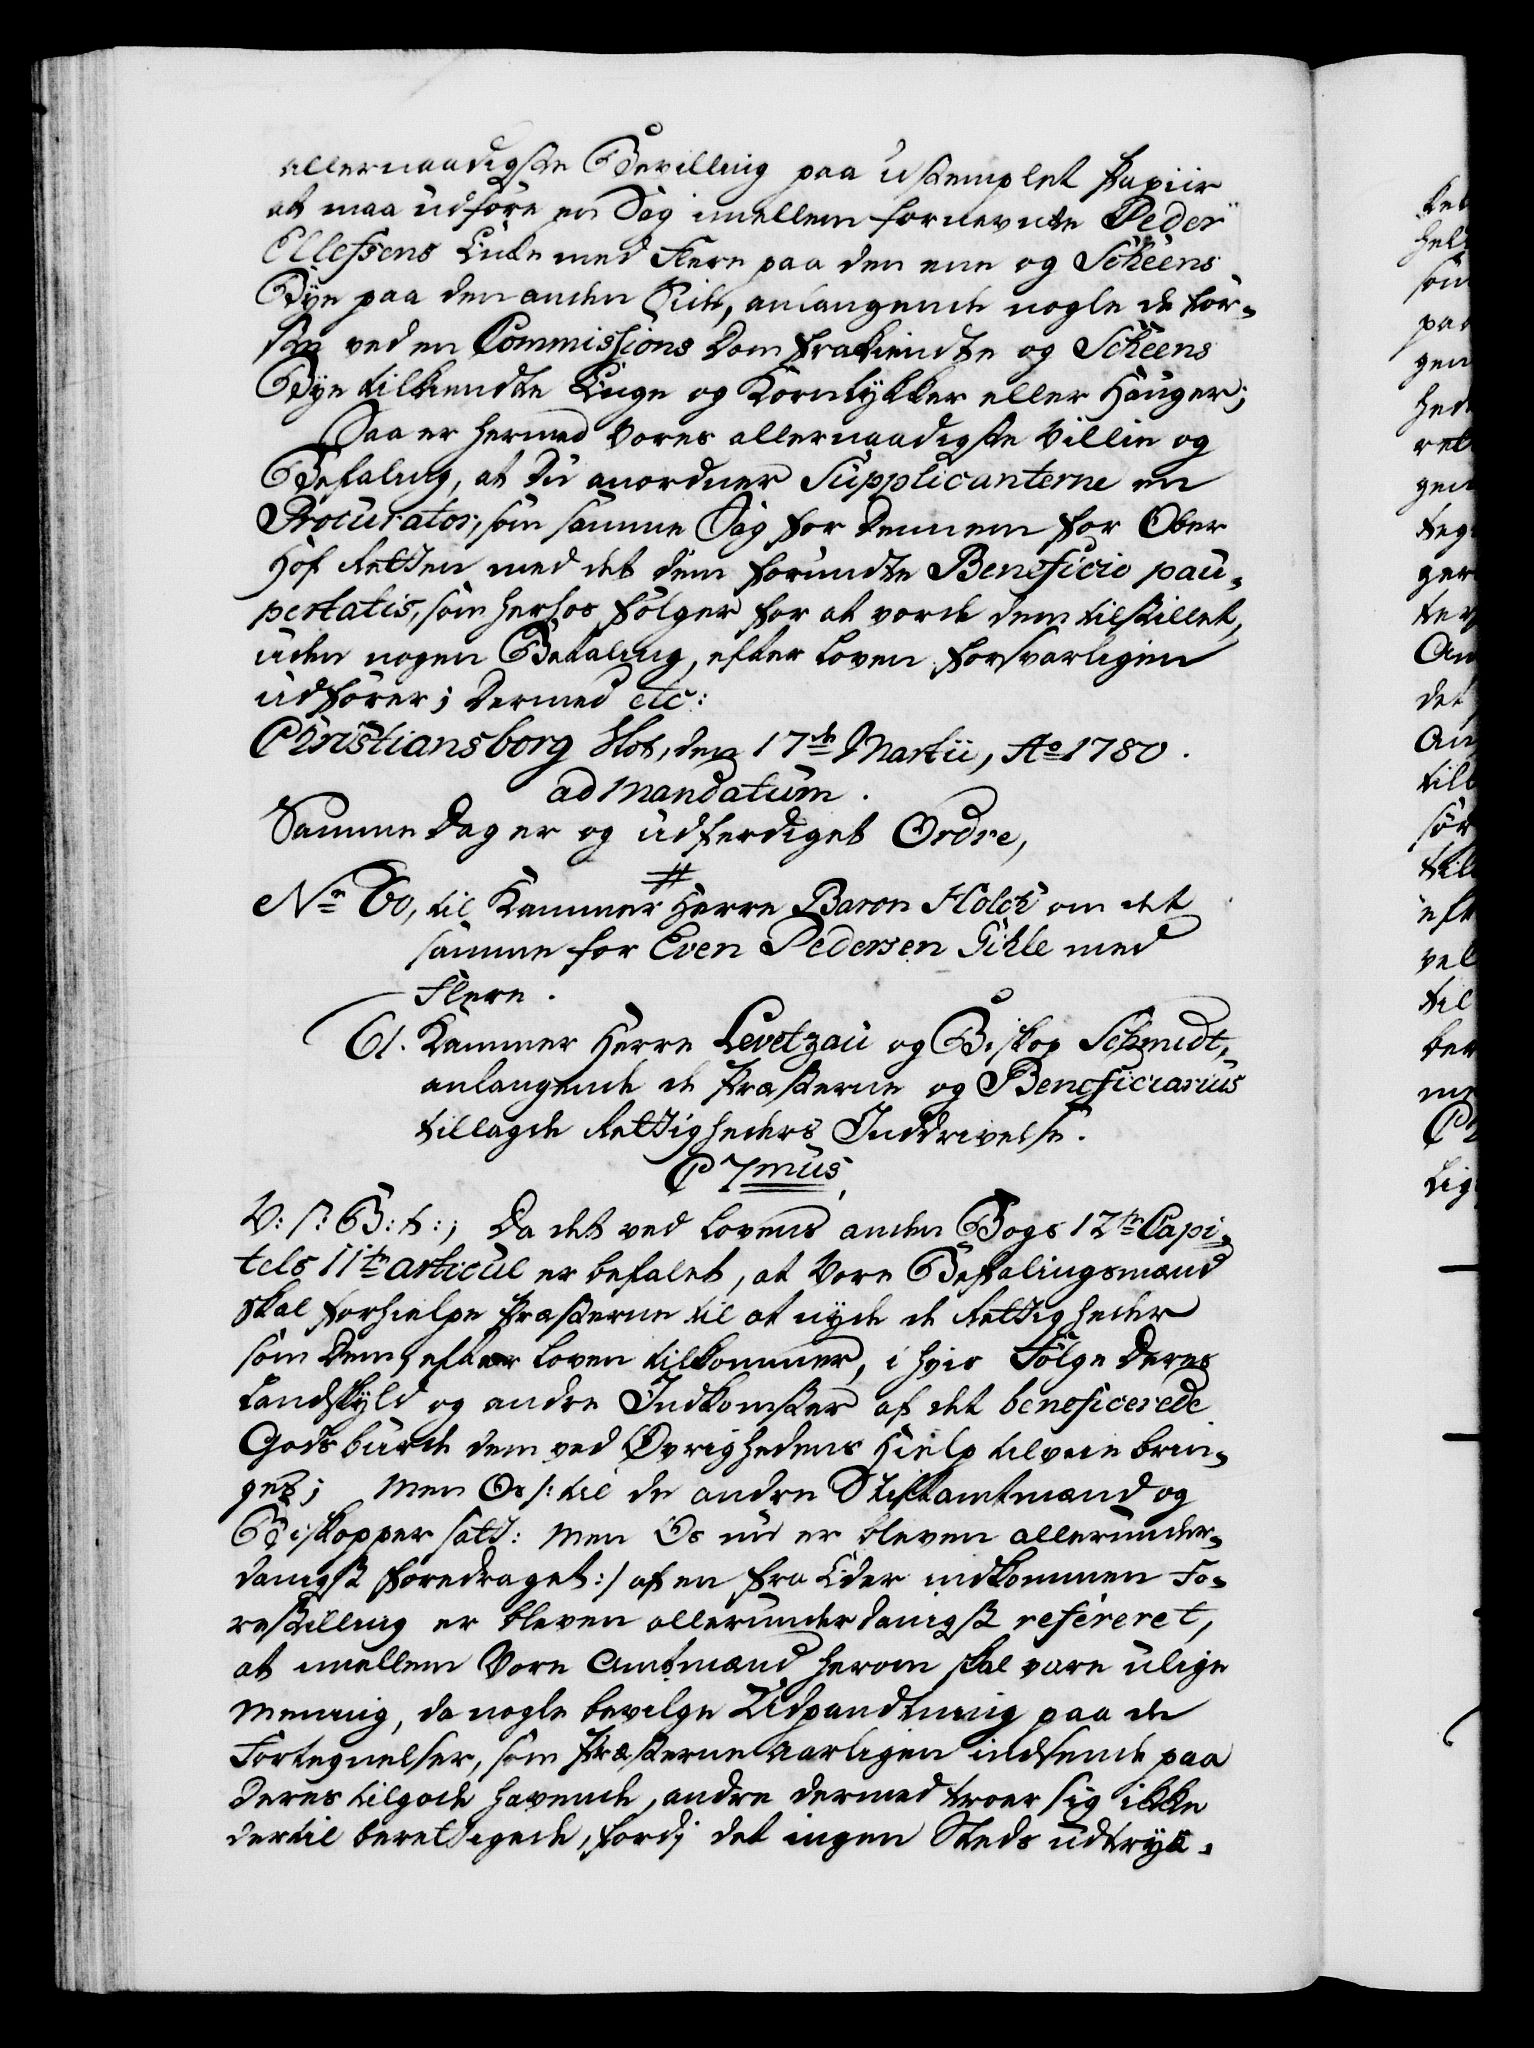 allernaadigste Bevilling paa ustemplet Papiir
at maa udføre en Sag imellem fornevnte Peder
Ellefsens Lide med Flere paa den ene og Scheens
Bye paa den anden Side, anlangende nogle de før¬
ste ved en Commissions Dom frakiendte og Scheens
Bye tilkiendte Enge og Kornlykker eller Hauger;
Saa er hermed Vores allernaadigste Villie og
Befaling, at Du anordner Supplicanterne en
Procurator, som samme Sag for Dennem for Ober
Hof Retten med det dem forundte Beneficio pau¬
pertatis, som herhos følger for at vorde dem tilstillet,
uden nogen Betaling, efter Loven forsvarligen
udfører; Dermed etc:
Christiansborg Slot, den 17de Martii, Ao 1780.
ad Mandatum.
Samme Dag er og udferdiget Ordre,
#
No 60, til Kammer Herre Baron Holck om det
samme for Even Pedersen Gihle med
Flere.
61. Kammer Herre Levetzau og Biskop Schmidt,
anlangende de Præsterne og Beneficiarius
tillagde Rettigheders Inddrivelse.
C 7mus
V: S: G: t:; Da det ved Lovens anden Bogs 12te Capi¬
tels 11te articul er befalet, at Vore Befalingsmænd
skal forhielpe Præsterne til at nyde de Rettigheder
som Dem efter Loven tilkommer, i hvis Følge Deres
Landskyld og andre Indkomster af det beneficerede
Gods burde dem ved Øvrighedens Hielp tilveie brin¬
ges; Men Os /: til de andre Stiftamtmænd og
Biskopper satt: Men Os nu er bleven allerunder¬
danigst foredraget :/ af en fra Eder indkommen Fo¬
restilling er bleven allerunderdanigst refereret,
at imellem Vore Amtmænd herom skal være ulige
Mening, da nogle bevilge Udpandtning paa de
Fortegnelser, som Præsterne aarligen indsende paa
Deres tilgode havende, andre dermed troer sig ikke
dertil berettigede, fordj det ingen Steds udtryk¬